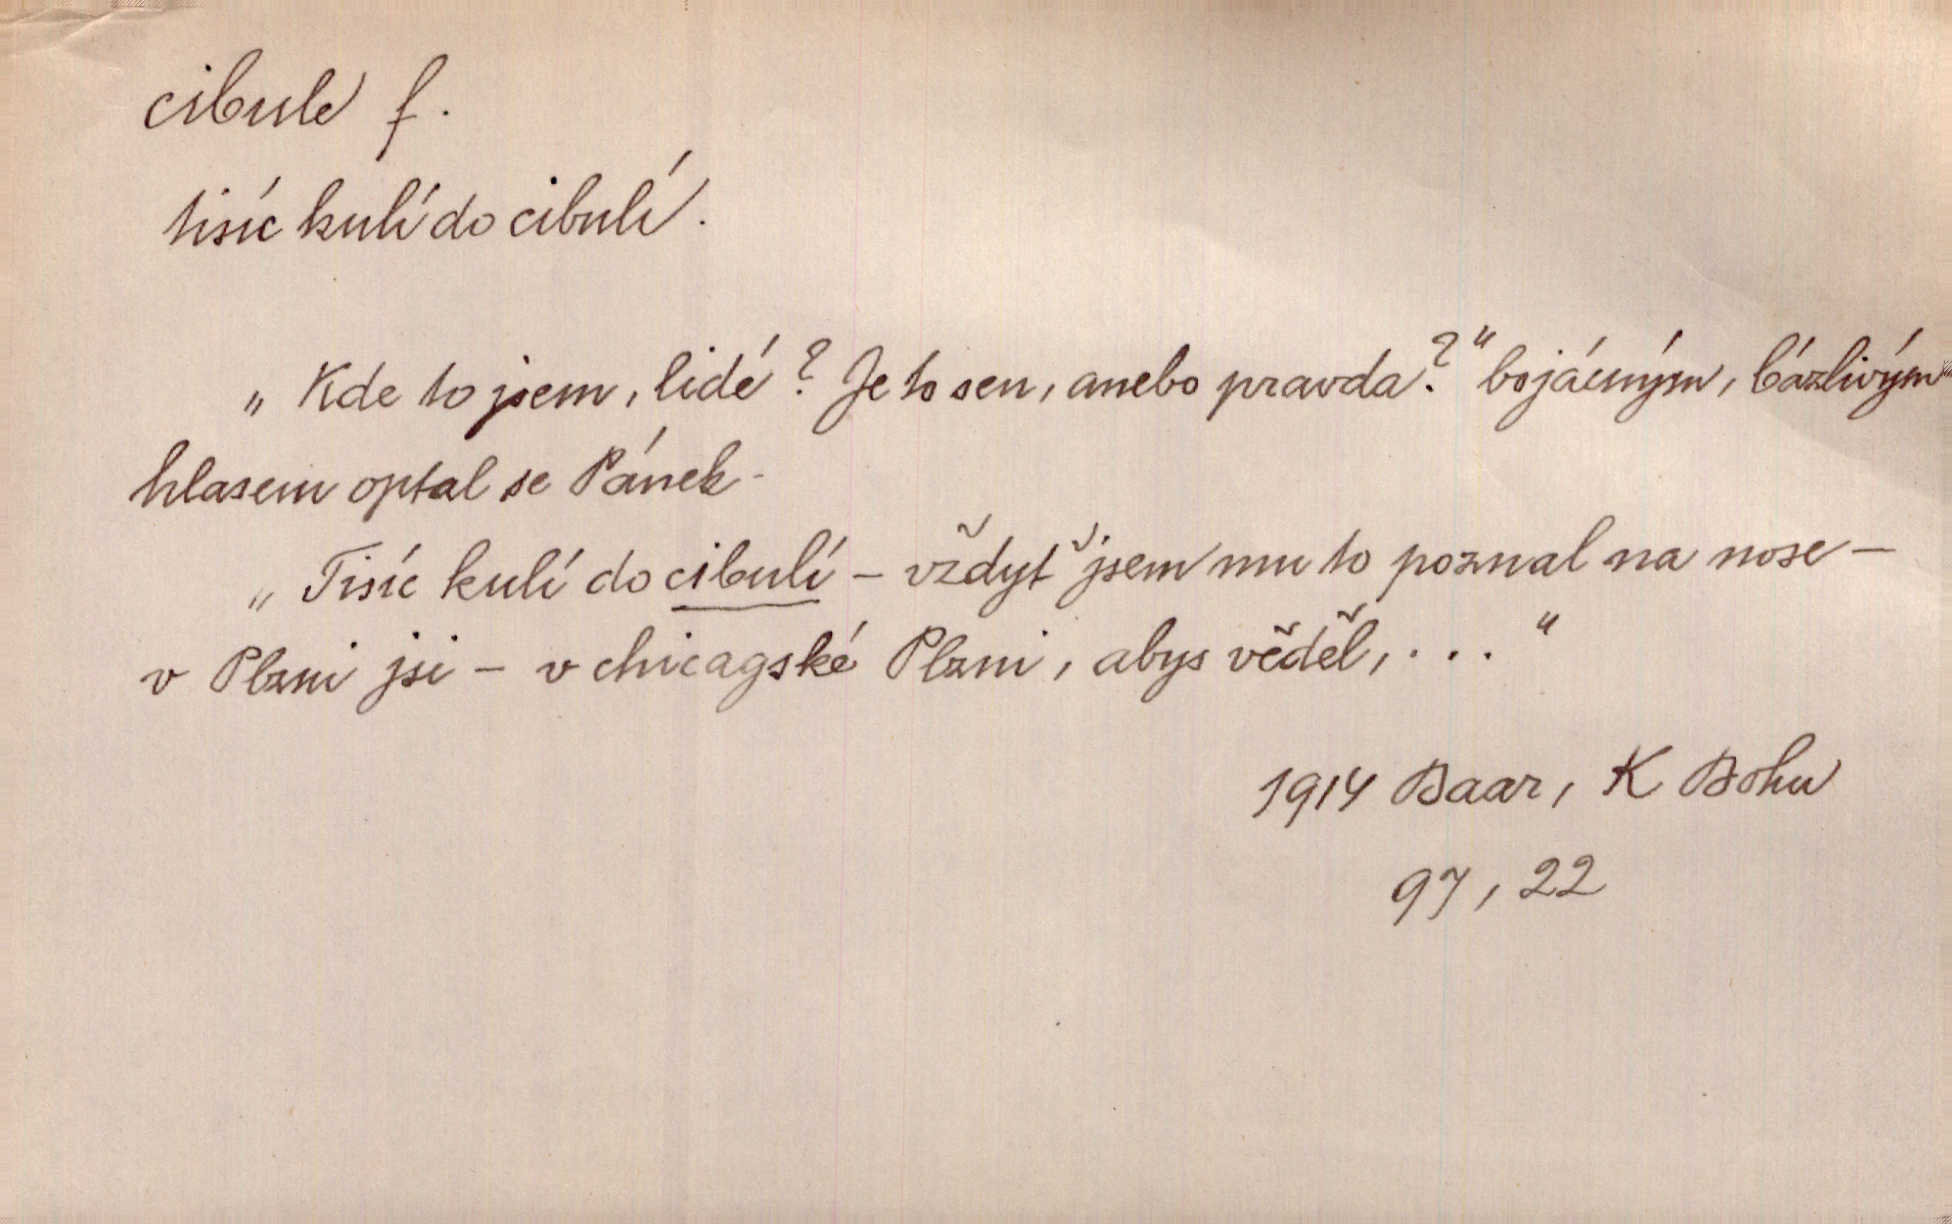 cibule f.
tisíc kulí do cibulí.
„Kde to jsem, lidé? Je to sen, anebo pravda?“ bojácným, bázlivým
hlasem optal se Pánek.
„Tisíc kulí do cibulí – vždyť jsem mu to poznal na nose –
v Plzni jsi – v chicagské Plzni, abys věděl, . . . “
1914 Baar, K Bohu
97, 22